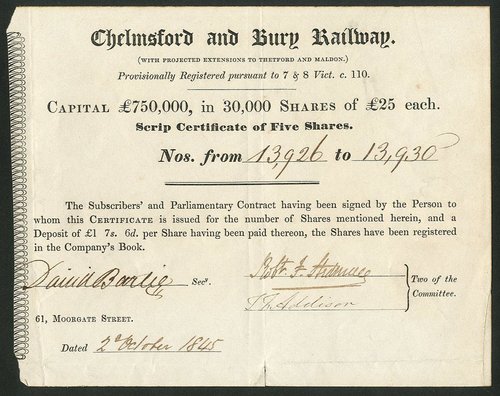 Chelmsford and Bury Railway.
(WITH PROJECTED EXTENSIONS TO THETFORD AND MALDON.)
Provisionally Registered pursuant to 7 & 8 Vict. c. 110.
CAPITAL £750,000, in 30,000 SHARES of £25 each.
Scrip Certificate of Five Shares.
Nos. from 13,926 to 13,930
The Subscribers' and Parliamentary Contract having been signed by the Person to
whom this CERTIFICATE is issued for the number of Shares mentioned herein, and a
Deposit of £1 7s. 6d. per Share having been paid thereon, the Shares have been registered
in the Company's Book.
David Secy.
Robt. F.
Addison
Two of the
Committee.
61, MOORGATE STREET.
Dated 2d October 1845